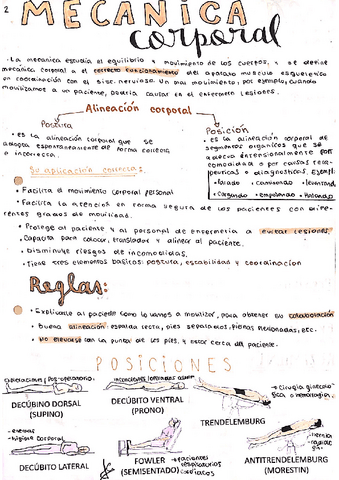 2
MECANICA
corporal
• La mecanica estudia el equilibrio y movimiento de los cuerpos, y se define
mecanica corporal a el correcto funcionamiento del aparato musculo esqueletico
en coordinación con el sist. nervioso. Un mal movimiento, por ejemplo, cuando
movilizamos a un paciente, podria causar en el enfermero lesiones.
Alineación corporal
Postura
• es la alineación corporal que se
adopta espontaneamente de forma correcta
o incorrecta.
Posición
• es la alineación corporal de
segmentos organicos que se
adecua intensionalmente por
comodidad o por causas tera-
peuticas o diagnosticas. Ejempl:
• parado • caminando • levantand
• Cargando • empujando • Halando
Su aplicación correcta:
• Facilita el movimiento corporal personal
• Facilita la atención en forma segura de los pacientes con dife-
rentes grados de movilidad.
• Protege al paciente y al personal de enfermeria a evitar lesiones.
• Capacita para colocar, transladar y alinear al paciente.
• Disminuye riesgos de incomodidas.
• Tiene tres elementos basicos: postura, estabilidad y coordinación
Reglas:
• Explicarle al paciente como lo vamos a movilizar, para obtener su colaboración
• buena alineación: espalda recta, pies separados, piernas flexionadas, etc.
• No elevarse con la punta de los pies, y estar cerca del paciente.
POSICIONES
operaciones, post-operatorio.
DECÚBINO DORSAL
(SUPINO)
DECÚBITO VENTRAL
(PRONO)
TRENDELEMBURG
→ cirugia ginecolo
gica o hemorragia.
• enemas
• higiene corporal
DECÚBITO LATERAL
FOWLER
(SEMISENTADO)
→ pacientes
respiratorios
cardiacos
ANTITRENDELEMBURG
(MORESTIN)
• hernia